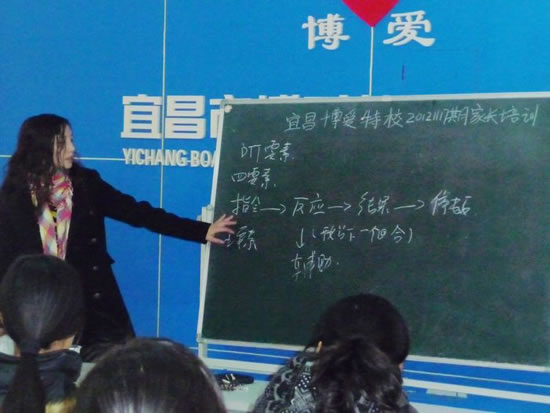 博 爱
宜昌市
YICHANG BOA
宜昌博爱特校201211期家长培训
DTT要素
四要素
指令→反应→结果→停顿
↓(或给下一个回合)
辅助